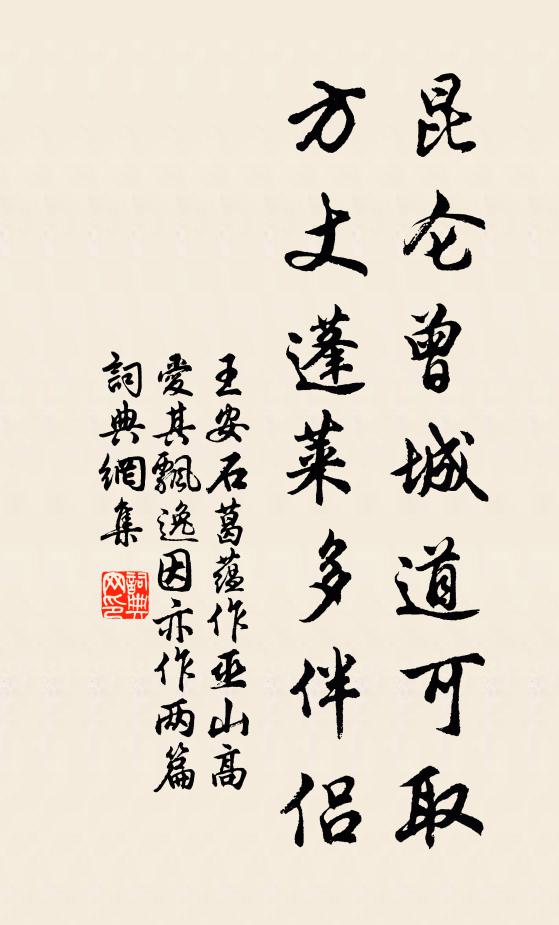 昆仑曾城道可取
方丈蓬莱多伴侣
王安石葛蕴作巫山高
愛其飄逸因亦作两篇
詞典網集
詞典网印